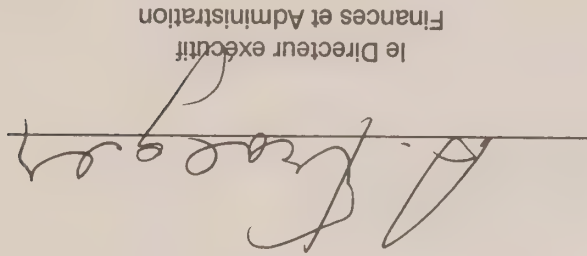 le Directeur exécutif
Finances et Administration